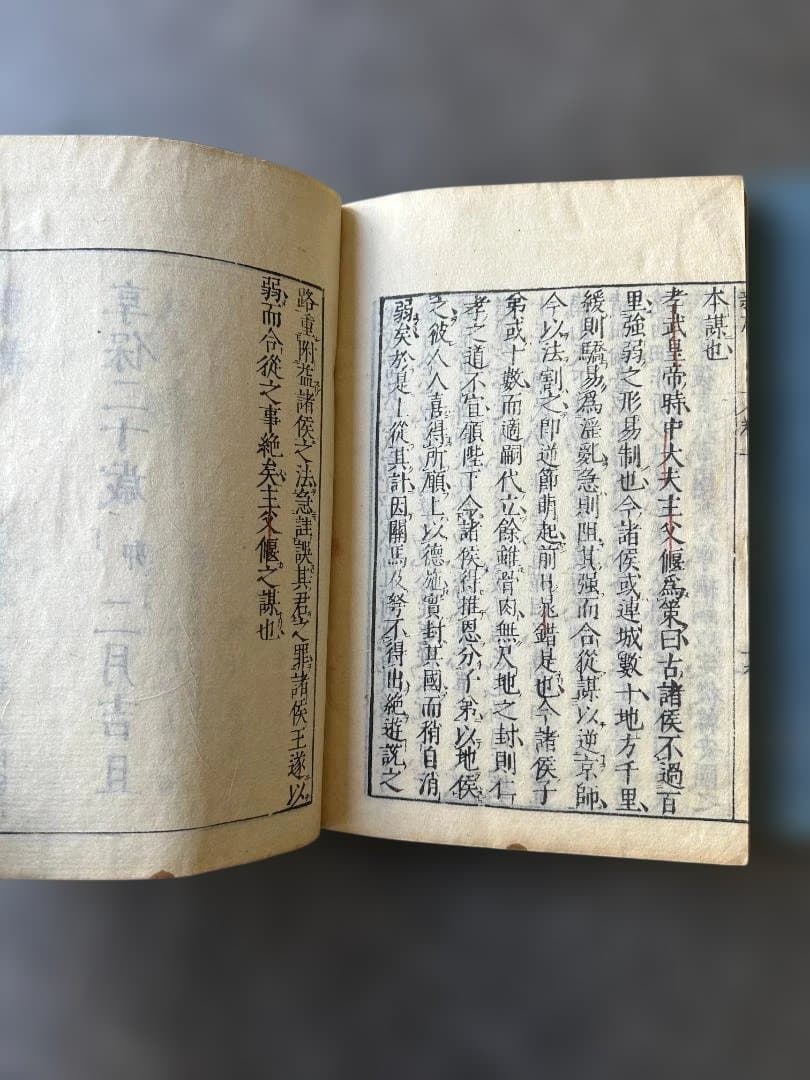 本謀也
孝武皇帝時中大夫主父偃為策曰古諸侯不過百
里強弱之形易制也今諸侯或連城數十地方千里
緩則驕易為淫亂急則阻其強而合從謀以逆京師
今以法割之即逆節萌起前日晁錯是也今諸侯子
弟或十數而適嗣代立餘雖骨肉無尺地之封則仁
孝之道不宣願陛下令諸侯得推恩分子弟以地侯
之彼人人喜得所願上以德施實封其國而稍自消
弱矣於是上從其計因關馬及弩不得出絕遊說之
路重附益諸侯之法急詿誤其君之罪諸侯王遂以
弱而合從之事絕矣主父偃之謀也
享保二十歲卯二月吉旦